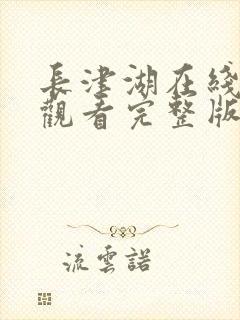 長津湖在綫
觀看完整版
流雲諾